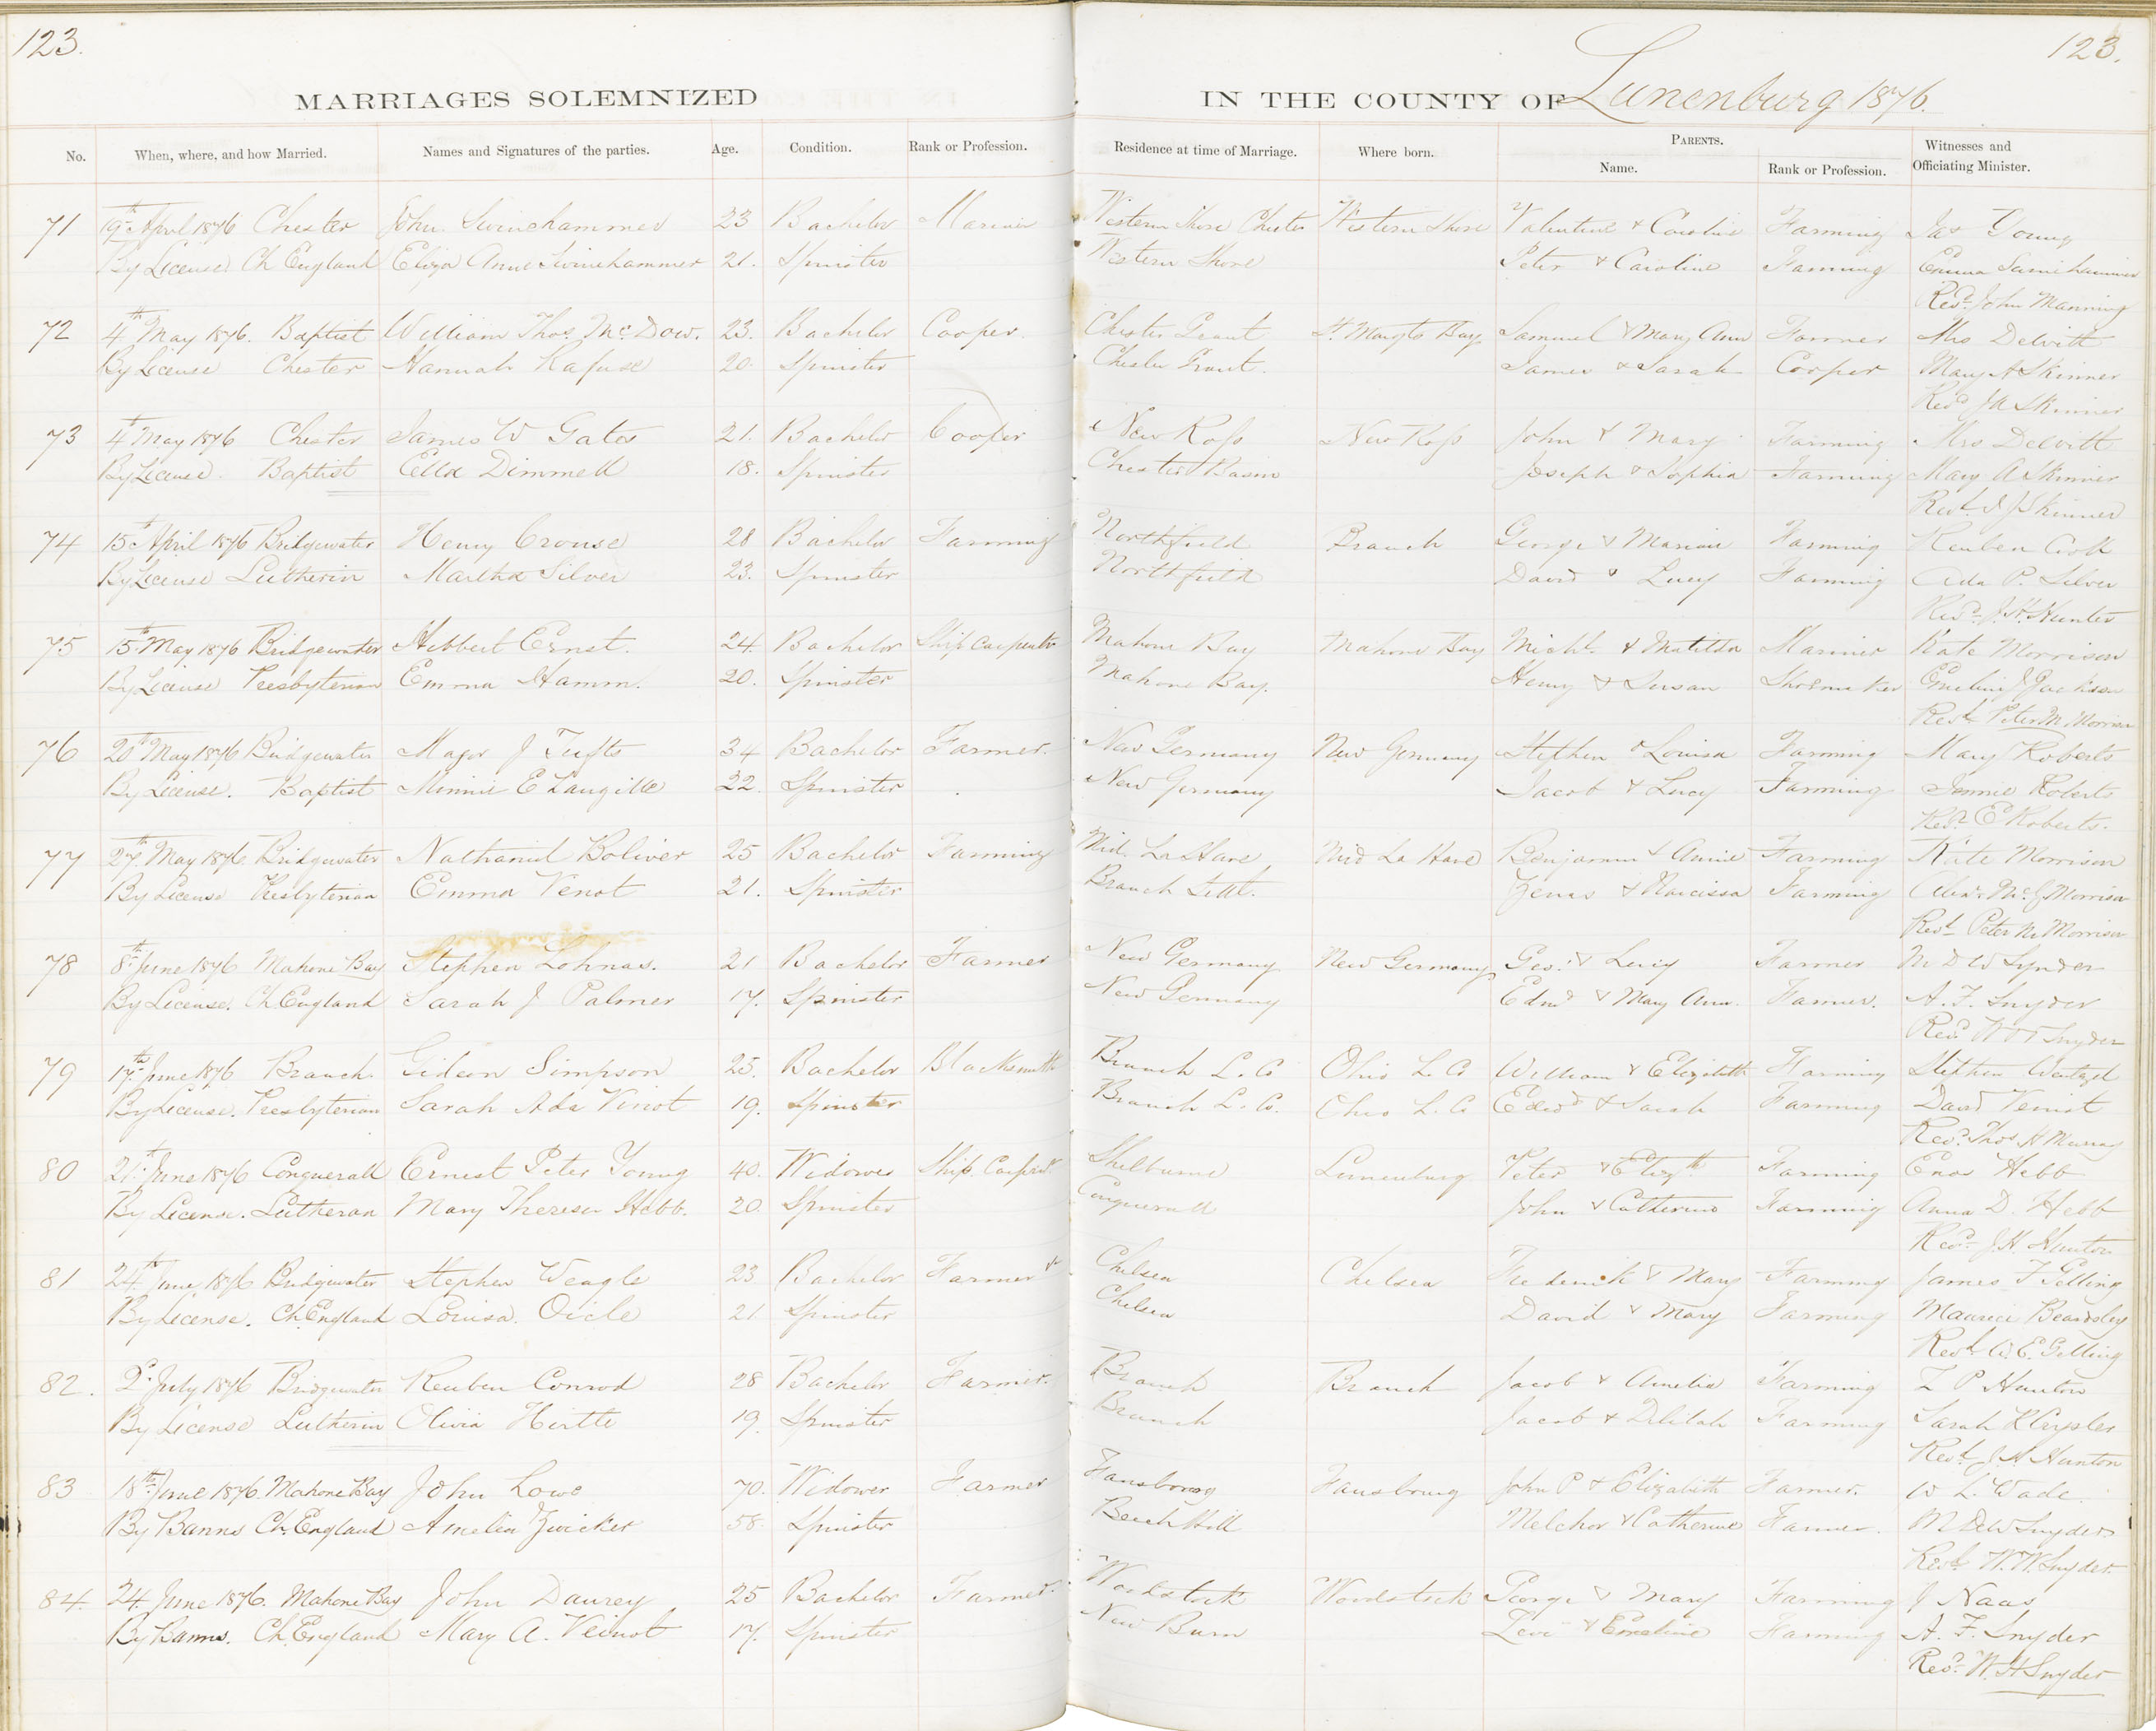 123.
123.
MARRIAGES SOLEMNIZED IN THE COUNTY OF Lunenburg 1876.
No. When, where, and how Married. Names and Signatures of the parties. Age. Condition. Rank or Profession. Residence at time of Marriage. Where born. PARENTS. Name. Rank or Profession. Witnesses and Officiating Minister.
71 19th April 1876 Chester John Swinehammer 23 Bachelor Mariner Western Shore Chester Western Shore Valentine & Caroline Farming Jas Young
By License Ch England Eliza Anne Swinehammer 21. Spinster Western Shore Peter & Caroline Farming Emma
Revd. John Manning
72 4th May 1876. Baptist William Thos. McDow. 23. Bachelor Cooper. Chester Grant St. Margts Bay Samuel & Mary Ann Farmer Mrs Dewitt
By License Chester Hannah Rafuse 20. Spinster Chester Grant. James & Sarah Cooper Mary A Skinner
Revd Skinner
73 4th May 1876 Chester James W Gates 21. Bachelor Cooper New Ross New Ross John & Mary Farming Mrs Dewitt
By License. Baptist Ella Dimmell 18. Spinster Chester Basin Joseph & Sophia Farming Mary A Skinner
Revd. Skinner
74 15th April 1876 Bridgewater Henry Crouse 28 Bachelor Farming Northfield Branch George & Farming Reuben
By License Lutherin Martha Silver 23. Spinster Northfield David & Lucy Farming Ada P. Silver
Revd. J.H.
75 15th May 1876 Bridgewater Hibbert Ernst. 24 Bachelor Ship Carpenter Mahone Bay Mahone Bay Michl. & Matilda Mariner Kate Morrison
By License Presbyterian Emma Hamm. 20. Spinster Mahone Bay. Henry & Susan Shoemaker Emeline J Jackson
Revd. Peter M Morrison
76 20th May 1876 Bridgewater Major J Tufts 34 Bachelor Farmer. New Germany New Germany Stephen & Louisa Farming Mary Roberts
By License. Baptist Minnie E Langille 22. Spinster New Germany Jacob & Lucy Farming Jennie Roberts
Revd. E Roberts.
77 27th May 1876. Bridgewater Nathaniel Boliver 25 Bachelor Farming Mid. La Have Mid La Have Benjamin & Annie Farming Kate Morrison
By License Presbyterian Emma Venot 21. Spinster Branch Settl. Zenas & Narcissa Farming Morrison
Revd. Peter M Morrison
78 8th June 1876 Mahone Bay Stephen Lohnas. 21 Bachelor Farmer New Germany New Germany Geo. & Lucy Farmer M D W Synder
By License. Ch. England Sarah J Palmer 17. Spinster New Germany Edmd & Mary Ann. Farmer. A. F. Snyder
Revd. Snyder
79 17th June 1876 Branch. Gideon Simpson 25. Bachelor Blacksmith Branch L. Co Ohio L. Co William & Elizabeth Farming Stephen
By License. Presbyterian Sarah Ada Vinot 19. Spinster Branch L. Co. Ohio L. Co Edwd & Sarah Farming David Veniot
Revd. Thos. H Murray
80 21st June 1876 Conquerall Ernest Peter Young 40. Widower Ship Carpentr Shelburne Lunenburg Peter & Elizth Farming Enos Hebb
By License. Lutheran Mary Theresa Hebb. 20. Spinster Conquerall John & Catherine Farming Anna D. Hebb
Revd. J.H. Hunton
81 24th June 1876 Bridgewater Stephen Weagle 23 Bachelor Farmer Chelsea Chelsea Frederick & Mary Farming James F Gelling
By License. Ch. England Louisa. Oicle 21 Spinster Chelsea David & Mary Farming Maurice Beardsley
Revd. W. E. Gelling
82. 2d July 1876 Bridgewater Reuben Conrod 28 Bachelor Farmer. Branch Branch Jacob & Amelia Farming L P Hunton
By License Lutherin Olivia Hirtle 19. Spinster Branch Jacob & Delilah Farming Sarah
Revd. J H Hunton
83 18th June 1876. Mahone Bay John Lowe 70. Widower Farmer Fausbourg Fausbourg John P & Elizabeth Farmer. W L. Wade.
By Banns Ch. England Amelia Zwicker 58. Spinster Beech Hill Melchor & Catherine Farmer. M D W Snyder
Revd. W. H. Snyder.
84. 24 June 1876. Mahone Bay John Daurey 25 Bachelor Farmer. Woodstock Woodstock George & Mary Farming J Naas
By Banns. Ch. England Mary A. Veinot 17. Spinster New Burn Levi & Emeline Farming A. F. Snyder
Revd. W. H Snyder